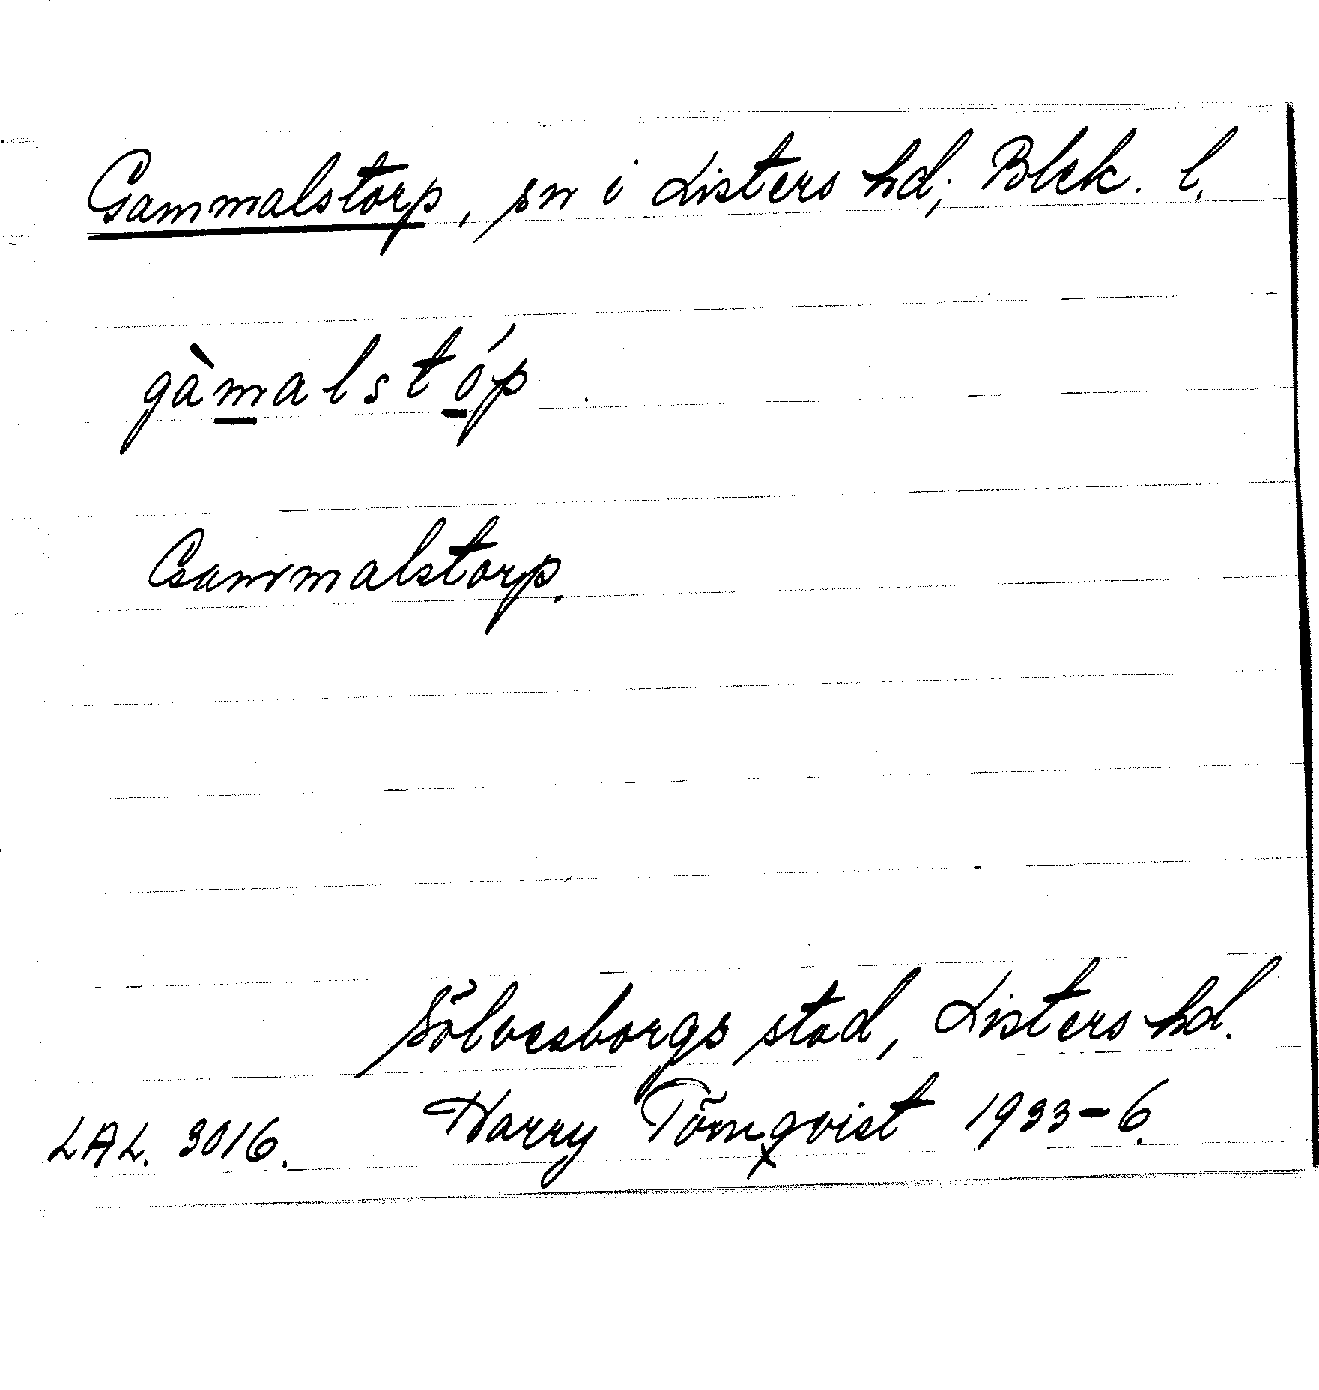 Gammalstorp, sn i Listers hd; Blek. l.
gàmalstóp
Gammalstorp.
Sölvesborgs stad, Listers hd.
Harry Törnqvist 1933-6.
LAL. 3016.